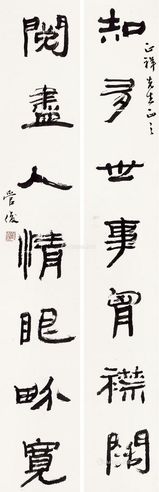 正祥先生正之
知多世事胷襟闊
閱盡人情眼畍寬
管俊